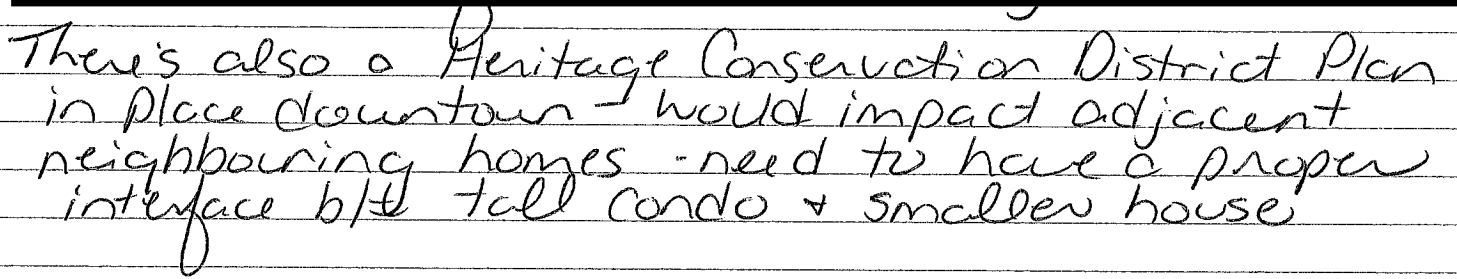 There's also a Heritage Conservation District Plan
in place downtown - would impact adjacent
neighbouring homes - need to have a proper
interface b/t tall condo + smaller house